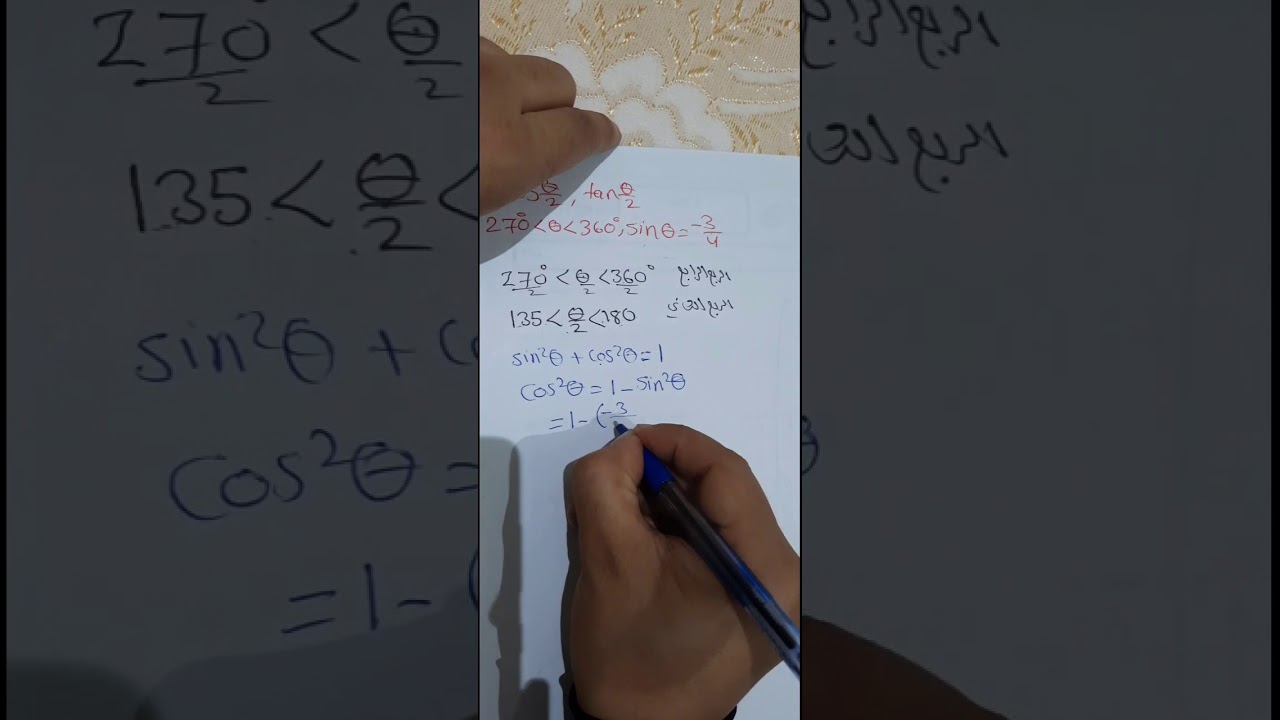 θ/2, tan θ/2
270° < θ < 360°, sin θ = -3/4
270°/2 < θ/2 < 360°/2 الربع الرابع
135 < θ/2 < 180 الربع الثاني
sin²θ + cos²θ = 1
cos²θ = 1 - sin²θ
= 1 - (-3